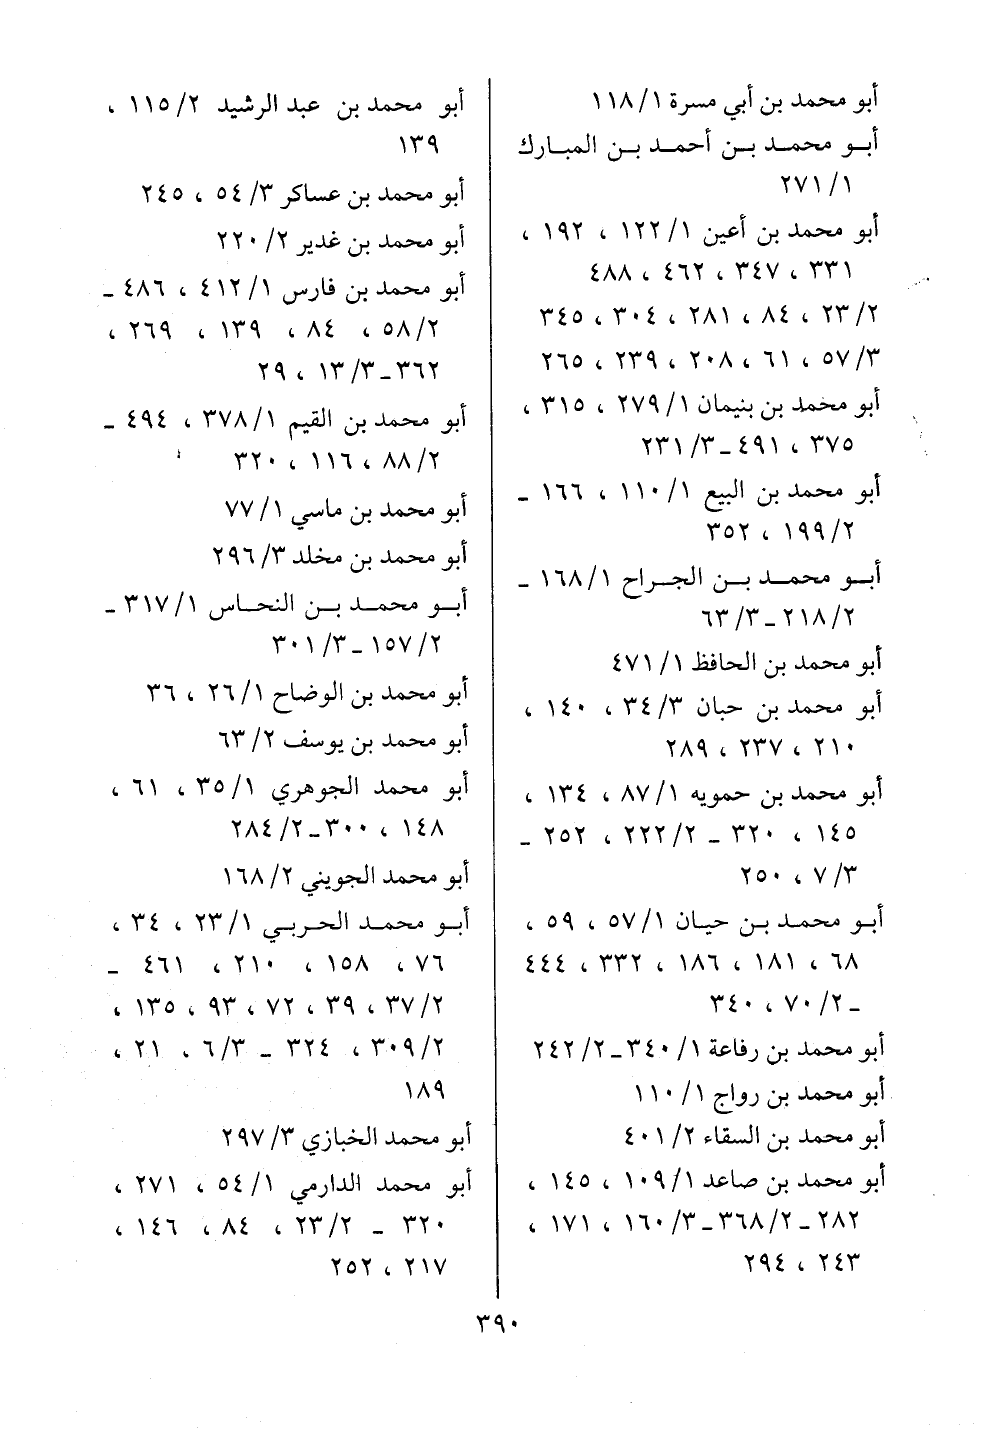 أبو محمد بن أبي مسرة ١/ ١١٨
أبــو محمــد بــن أحمــد بــن المبــارك
١/ ٢٧١
أبو محمد بن أعين ١/ ١٢٢ ، ١٩٢ ،
٣٣١ ، ٣٤٧ ، ٤٦٢ ، ٤٨٨
٢/ ٢٣ ، ٨٤ ، ٢٨١ ، ٣٠٤ ، ٣٤٥
٣/ ٥٧ ، ٦١ ، ٢٠٨ ، ٢٣٩ ، ٢٦٥
أبو محمد بن بنيمان ١/ ٢٧٩ ، ٣١٥ ،
٣٧٥ ، ٤٩١ ـ ٣/ ٢٣١
أبو محمد بن البيع ١/ ١١٠ ، ١٦٦ ـ
٢/ ١٩٩ ، ٣٥٢
أبــو محمــد بــن الجــراح ١/ ١٦٨ ـ
٢/ ٢١٨ ـ ٣/ ٦٣
أبو محمد بن الحافظ ١/ ٤٧١
أبو محمد بن حبان ٣/ ٣٤ ، ١٤٠ ،
٢١٠ ، ٢٣٧ ، ٢٨٩
أبو محمد بن حمويه ١/ ٨٧ ، ١٣٤ ،
١٤٥ ، ٣٢٠ ـ ٢/ ٢٢٢ ، ٢٥٢ ـ
٣/ ٧ ، ٢٥٠
أبــو محمــد بــن حيــان ١/ ٥٧ ، ٥٩ ،
٦٨ ، ١٨١ ، ١٨٦ ، ٣٣٢ ، ٤٤٤
ـ ٢/ ٧٠ ، ٣٤٠
أبو محمد بن رفاعة ١/ ٣٤٠ ـ ٢/ ٢٤٢
أبو محمد بن رواج ١/ ١١٠
أبو محمد بن السقاء ٢/ ٤٠١
أبو محمد بن صاعد ١/ ١٠٩ ، ١٤٥ ،
٢٨٢ ـ ٢/ ٣٦٨ ـ ٣/ ١٦٠ ، ١٧١ ،
٢٤٣ ، ٢٩٤
أبو محمد بن عبد الرشيد ٢/ ١١٥ ،
١٣٩
أبو محمد بن عساكر ٣/ ٥٤ ، ٢٤٥
أبو محمد بن غدير ٢/ ٢٢٠
أبو محمد بن فارس ١/ ٤١٢ ، ٤٨٦ ـ
٢/ ٥٨ ، ٨٤ ، ١٣٩ ، ٢٦٩ ،
٣٦٢ ـ ٣/ ١٣ ، ٢٩
أبو محمد بن القيم ١/ ٣٧٨ ، ٤٩٤ ـ
٢/ ٨٨ ، ١١٦ ، ٣٢٠
أبو محمد بن ماسي ١/ ٧٧
أبو محمد بن مخلد ٣/ ٢٩٦
أبــو محمــد بــن النحــاس ١/ ٣١٧ ـ
٢/ ١٥٧ ـ ٣/ ٣٠١
أبو محمد بن الوضاح ١/ ٢٦ ، ٣٦
أبو محمد بن يوسف ٢/ ٦٣
أبو محمد الجوهري ١/ ٣٥ ، ٦١ ،
١٤٨ ، ٣٠٠ ـ ٢/ ٢٨٤
أبو محمد الجويني ٢/ ١٦٨
أبــو محمــد الحربــي ١/ ٢٣ ، ٣٤ ،
٧٦ ، ١٥٨ ، ٢١٠ ، ٤٦١ ـ
٢/ ٣٧ ، ٣٩ ، ٧٢ ، ٩٣ ، ١٣٥ ،
٢/ ٣٠٩ ، ٣٢٤ ـ ٣/ ٦ ، ٢١ ،
١٨٩
أبو محمد الخبازي ٣/ ٢٩٧
أبو محمد الدارمي ١/ ٥٤ ، ٢٧١ ،
٣٢٠ ـ ٢/ ٢٣ ، ٨٤ ، ١٤٦ ،
٢١٧ ، ٢٥٢
٣٩٠